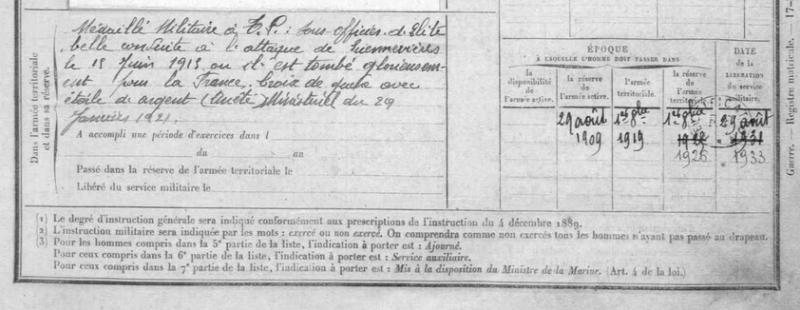 Médaillé Militaire à T.P. : sous-officier d'élite
belle conduite à l'attaque de
le 15 juin 1915 où il est tombé glorieusem-
ent pour la France. Croix de guerre avec
étoile de argent (Arrêté Ministériel du 29
Janvier 1921.
Dans l'armée territoriale
et dans sa réserve.
A accompli une période d'exercices dans l
du au
Passé dans la réserve de l'armée territoriale le
Libéré du service militaire le
ÉPOQUE
À LAQUELLE L'HOMME DOIT PASSER DANS
DATE
DE LA
LIBÉRATION
du service
militaire.
la disponibilité de l'armée active.
la réserve de l'armée active.
l'armée territoriale.
la réserve de l'armée territoriale
29 août 1er 8bre 1er 8bre 29 août
1909 1919 1931
1926 1933
Guerre. — Registre matricule. 17-
(1) Le degré d'instruction générale sera indiqué conformément aux prescriptions de l'instruction du 4 décembre 1889.
(2) L'instruction militaire sera indiquée par les mots : exercé ou non exercé. On comprendra comme non exercés tous les hommes n'ayant pas passé au drapeau.
(3) Pour les hommes compris dans la 5e partie de la liste, l'indication à porter est : Ajourné.
Pour ceux compris dans la 6e partie de la liste, l'indication à porter est : Service auxiliaire.
Pour ceux compris dans la 7e partie de la liste, l'indication à porter est : Mis à la disposition du Ministre de la Marine. (Art. 4 de la loi.)